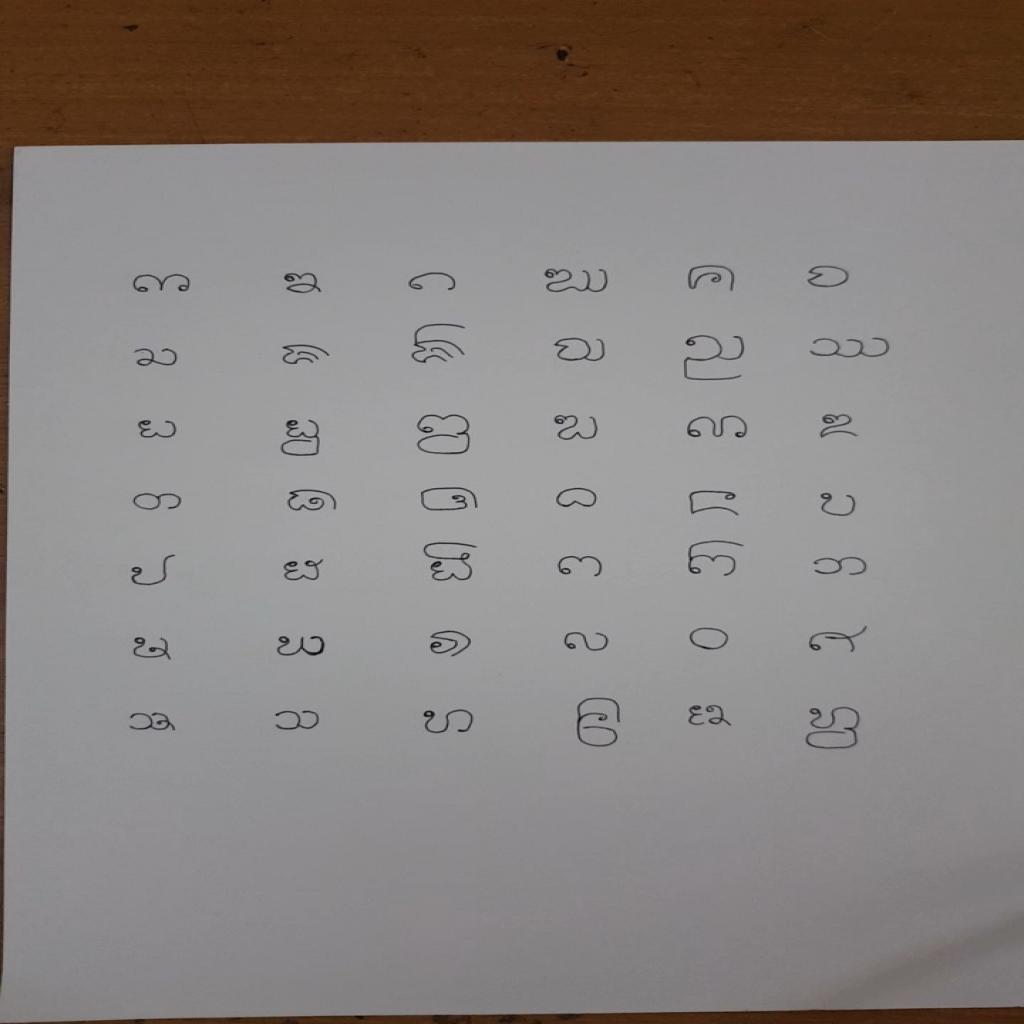 ᨠ ᨡ ᨣ ᨢ ᨤ ᨥ
ᨦ ᨧ ᨨ ᨩ ᨪ ᨫ
ᨬ ᨭ ᨮ ᨯ ᨰ ᨱ
ᨲ ᨳ ᨴ ᨵ ᨶ ᨷ
ᨸ ᨹ ᨺ ᨻ ᨼ ᨽ
ᨾ ᨿ ᩁ ᩃ ᩅ ᩆ
ᩇ ᩈ ᩉ ᩊ ᩋ ᩌ